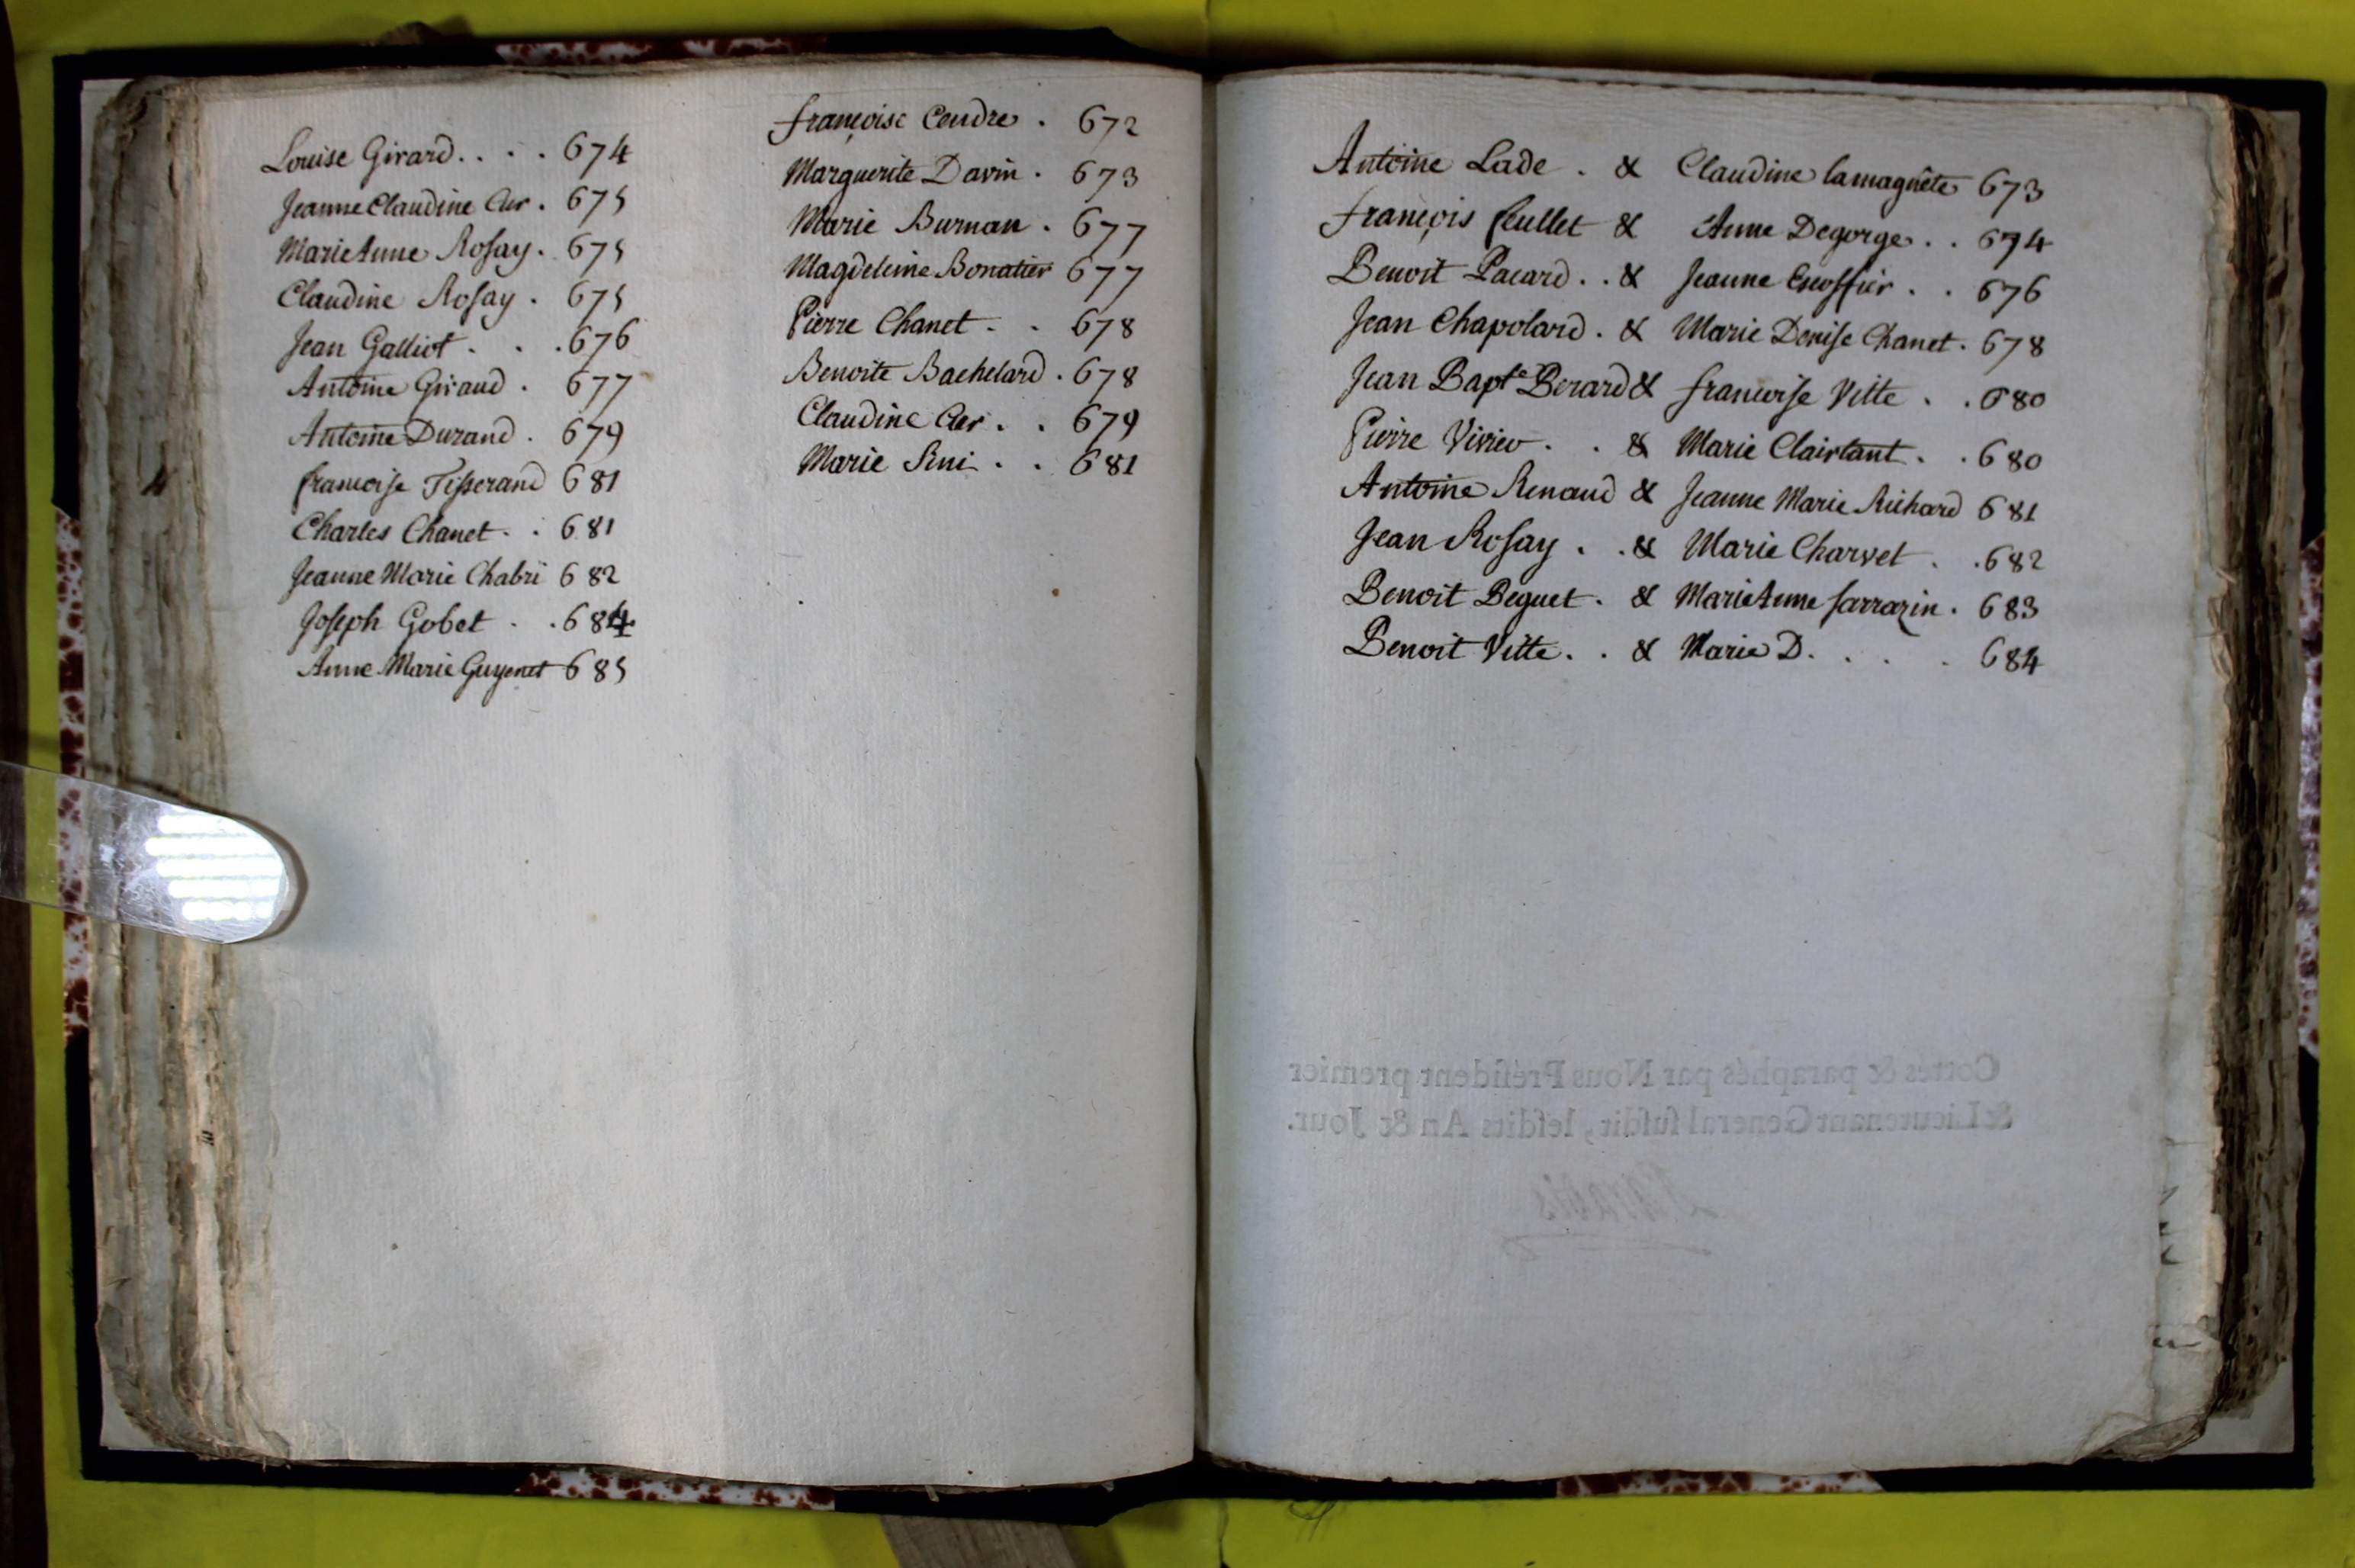 Louise Girard. . . . 674
Jeanne Claudine Cler . 675
Marie Anne Rosay . 675
Claudine Rosay . 675
Jean Galliot . . . 676
Antoine Giraud . 677
Antoine Durand . 679
francoise Tisserand 681
Charles Chanet . . 681
Jeanne Marie Chabri 682
Joseph Gobet . . 684
Anne Marie Guyenet 685
françoise Cendre . 672
Marguerite Davin . 673
Marie Burnan . 677
Magdeleine Bonatier 677
Pierre Chanet . . 678
Benoite Bachelard . 678
Claudine Cler . . 679
Marie . . 681
Antoine Lade . & Claudine lamagnête 673
françois feullet & Anne Degorge . . 674
Benoit Pacard . . & Jeanne Escoffier . . 676
Jean Chapolard . & Marie Denise Chanet . 678
Jean Bapte Berard & francoise Vitte . . 680
Pierre Virieu . . & Marie Clairtant . . 680
Antoine Renaud & Jeanne Marie Richard 681
Jean Rosay . . & Marie Charvet . . 682
Benoit Beguet . & Marie Anne sarrazin . 683
Benoit Vitte . . & Marie D. . . . 684
Cottes & paraphés par Nous Préſident premier
& Lieutenant General ſuſdit, leſdits An & Jour.